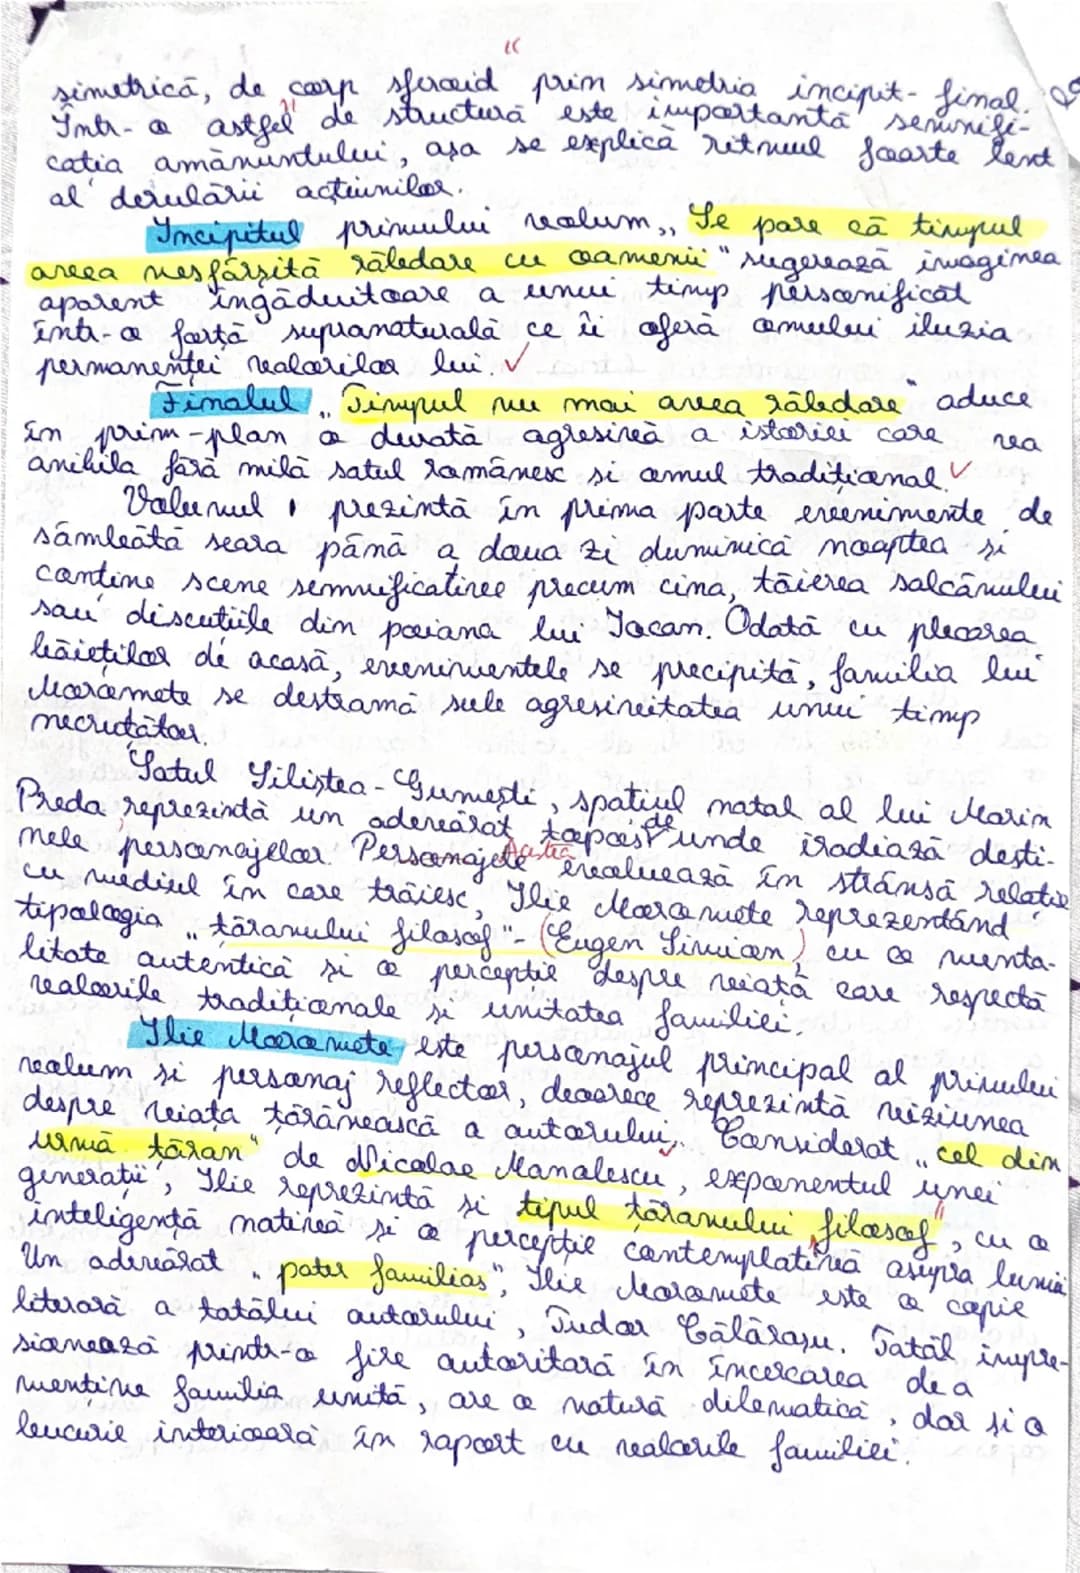 simetrică, de corp sferoid prin simetria incipit-final.
Într-o astfel de structură este importantă semnifi-
cația amănuntului, așa se explică ritmul foarte lent
al derulării acțiunilor.
Incipitul primului volum „Se pare că timpul
avea nesfârșită răbdare cu oamenii" sugerează imaginea
aparent îngăduitoare a unui timp personificat
într-o forță supranaturală ce îi oferă omului iluzia
permanenței valorilor lui.
Finalul „Timpul nu mai avea răbdare" aduce
în prim-plan o durată agresivă a istoriei care va
anihila fără milă satul românesc si omul tradițional.
Volumul 1 prezintă în prima parte evenimente de
sâmbătă seara până a doua zi duminică noaptea și
conține scene semnificative precum cina, tăierea salcâmului
sau discuțiile din poiana lui Iocan. Odată cu plecarea
băieților de acasă, evenimentele se precipită, familia lui
Moromete se destramă sub agresivitatea unui timp
necruțător.
Satul Siliștea-Gumești, spațiul natal al lui Marin
Preda, reprezintă un adevărat topos de unde iradiază desti-
nele personajelor. Personajele Acestea evoluează în strânsă relație
cu mediul în care trăiesc, Ilie Moromete reprezentând
tipologia „țăranului filosof"- (Eugen Simion) cu o menta-
litate autentică și o percepție despre viață care respectă
valorile tradiționale și unitatea familiei.
Ilie Moromete este personajul principal al primului
volum și personaj reflector, deoarece reprezintă viziunea
despre viața țărănească a autorului. Considerat „cel din
urmă țăran" de Nicolae Manolescu, exponentul unei
generații, Ilie reprezintă și tipul „țăranului filosof", cu o
inteligență nativă și o percepție contemplativă asupra lumii.
Un adevărat „pater familias", Ilie Moromete este o copie
literară a tatălui autorului, Tudor Călărașu. Tatăl impre-
sionează printr-o fire autoritară în încercarea de a
menține familia unită, are o natură dilematică, dar și o
bucurie interioară în raport cu valorile familiei.